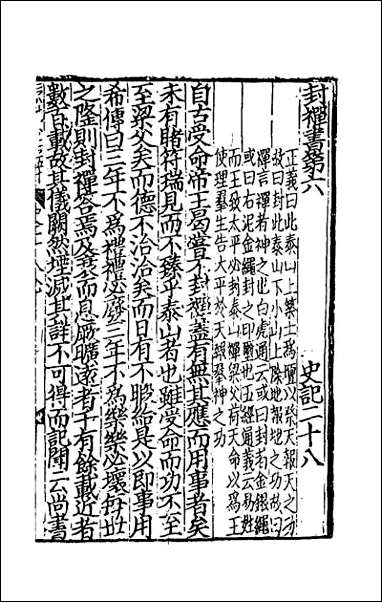 封禪書第六　史記二十八
正義曰此泰山上築土爲壇以祭天報天之功
故曰封此泰山下小山上除地報地之功故曰
禪言禪者神之也白虎通云或曰封者金銀繩
或曰石泥金繩封之印璽也五經通義云易姓
而王致太平必封泰山禪梁父荷天命以爲王
使理羣生告太平於天報羣神之功
自古受命帝王曷嘗不封禪蓋有無其應而用事者矣
未有睹符瑞見而不臻乎泰山者也雖受命而功不至
至梁父矣而德不洽洽矣而日有不暇給是以即事用
希傳曰三年不爲禮禮必廢三年不爲樂樂必壞每世
之隆則封禪荅焉及衰而息厥曠遠者千有餘載近者
數百載故其儀闕然堙滅其詳不可得而記聞云尚書